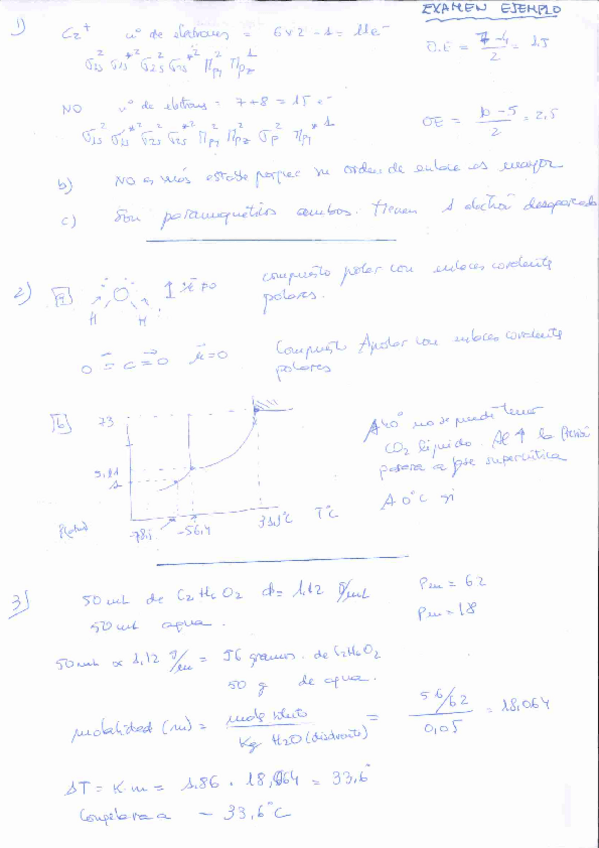 EXAMEN EJEMPLO
1) C2+ nº de electrones = 6x2 - 1 = 11e-
σ1s² σ1s*² σ2s² σ2s*² Πpy² Πpz¹ O.E = 7-4/2 = 1,5
NO nº de electrons = 7+8 = 15 e-
σ1s² σ1s*² σ2s² σ2s*² Πpy² Πpz² σp² Πpy*¹ OE = 10-5/2 = 2,5
b) NO es más estable porque su orden de enlace es mayor
c) Son paramagnéticos ambos. Tienen 1 electrón desapareado
2) a) O H H μ≠0 compuesto polar con enlaces covalente
polares.
O = C = O μ=0 Compuesto Apolar con enlaces covalente
polares
b) 73
5,11
1
-78,5 -56,4 31,1°C T°C
A 40° no se puede tener
CO2 líquido. Al ↑ la Presión
pasara a fase supercrítica
A 0°C si
3) 50 mL de C2H6O2 d= 1,12 g/mL Pm = 62
50 mL agua. Pm = 18
50 mL x 1,12 g/mL = 56 gramos de C2H6O2
50 g de agua.
molalidad (m) = moles soluto / Kg H2O (disolvente) = 56/62 / 0,05 = 18,064
ΔT = K·m = 1.86 · 18,064 = 33,6°
Congelara a - 33,6°C